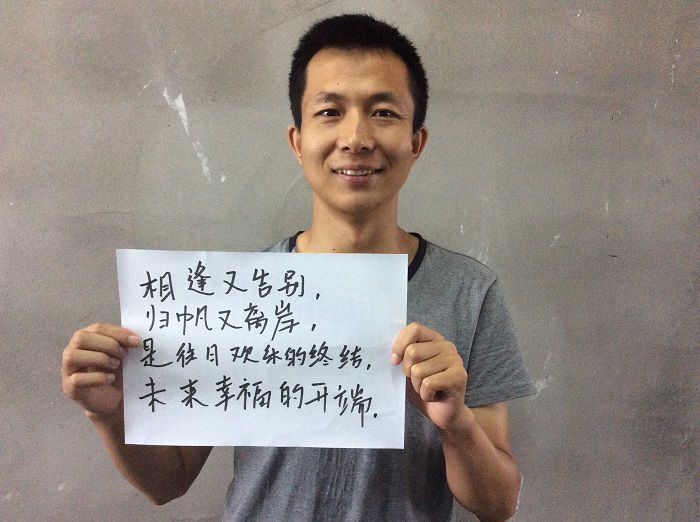 相逢又告别,
归帆又离岸,
是往日欢乐的终结,
未来幸福的开端.